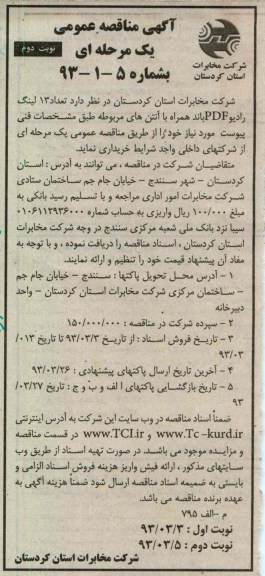 آگهی مناقصه عمومی
یک مرحله ای
نوبت دوم
بشماره ۵-۱-۹۳
شرکت مخابرات
استان کردستان
شرکت مخابرات استان کردستان در نظر دارد تعداد۱۳ لینگ
رادیوPDFباند همراه با آنتن های مربوطه طبق مشخصات فنی
پیوست مورد نیاز خود را از طریق مناقصه عمومی یک مرحله ای
از شرکتهای داخلی واجد شرایط خریداری نماید.
متقاضیان شرکت در مناقصه ، می توانند به آدرس : استان
کردستان - شهر سنندج - خیابان جام جم ساختمان ستادی
شرکت مخابرات امور اداری مراجعه و با تسلیم رسید بانکی به
مبلغ ۱۰۰/۰۰۰ ریال واریزی به حساب شماره ۰۱۰۶۱۱۲۹۳۶۰۰۰
سیبا نزد بانک ملی شعبه مرکزی سنندج در وجه شرکت مخابرات
استان کردستان ، اسناد مناقصه را دریافت نموده ، و با توجه به
مفاد آن پیشنهاد قیمت خود را تنظیم و ارائه نمایند.
۱ - آدرس محل تحویل پاکتها : سنندج - خیابان جام جم
- ساختمان مرکزی شرکت مخابرات استان کردستان - واحد
دبیرخانه
۲ - سپرده شرکت در مناقصه : ۱۵۰/۰۰۰/۰۰۰
۳ - تاریخ فروش اسناد : از تاریخ ۹۳/۰۳/۳ تا تاریخ ۰۱۳/
۹۳/۰۳
۴ - آخرین تاریخ ارسال پاکتهای پیشنهادی : ۹۳/۰۳/۲۶
۵ - تاریخ بازگشایی پاکتهای ا لف و ب و ج : تاریخ ۰۳/۲۷/
۹۳
ضمناً اسناد مناقصه در وب سایت این شرکت به آدرس اینترنتی
www.Tc-kurd.ir و www.TCI.ir در قسمت مناقصه
و مزایده موجود می باشد. در صورت تهیه اسناد از طریق وب
سایتهای مذکور ، ارائه فیش واریز هزینه فروش اسناد الزامی و
بایستی به ضمیمه اسناد مناقصه ارسال شود ضمناً هزینه آگهی به
عهده برنده مناقصه می باشد.
م -الف ۷۹۵
نوبت اول : ۹۳/۰۳/۳
نوبت دوم : ۹۳/۰۳/۵
شرکت مخابرات استان کردستان